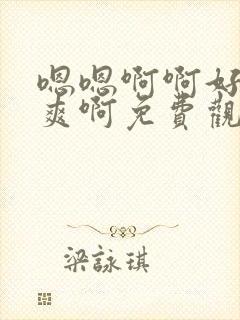 嗯嗯啊啊好
爽啊免費觀
梁詠琪